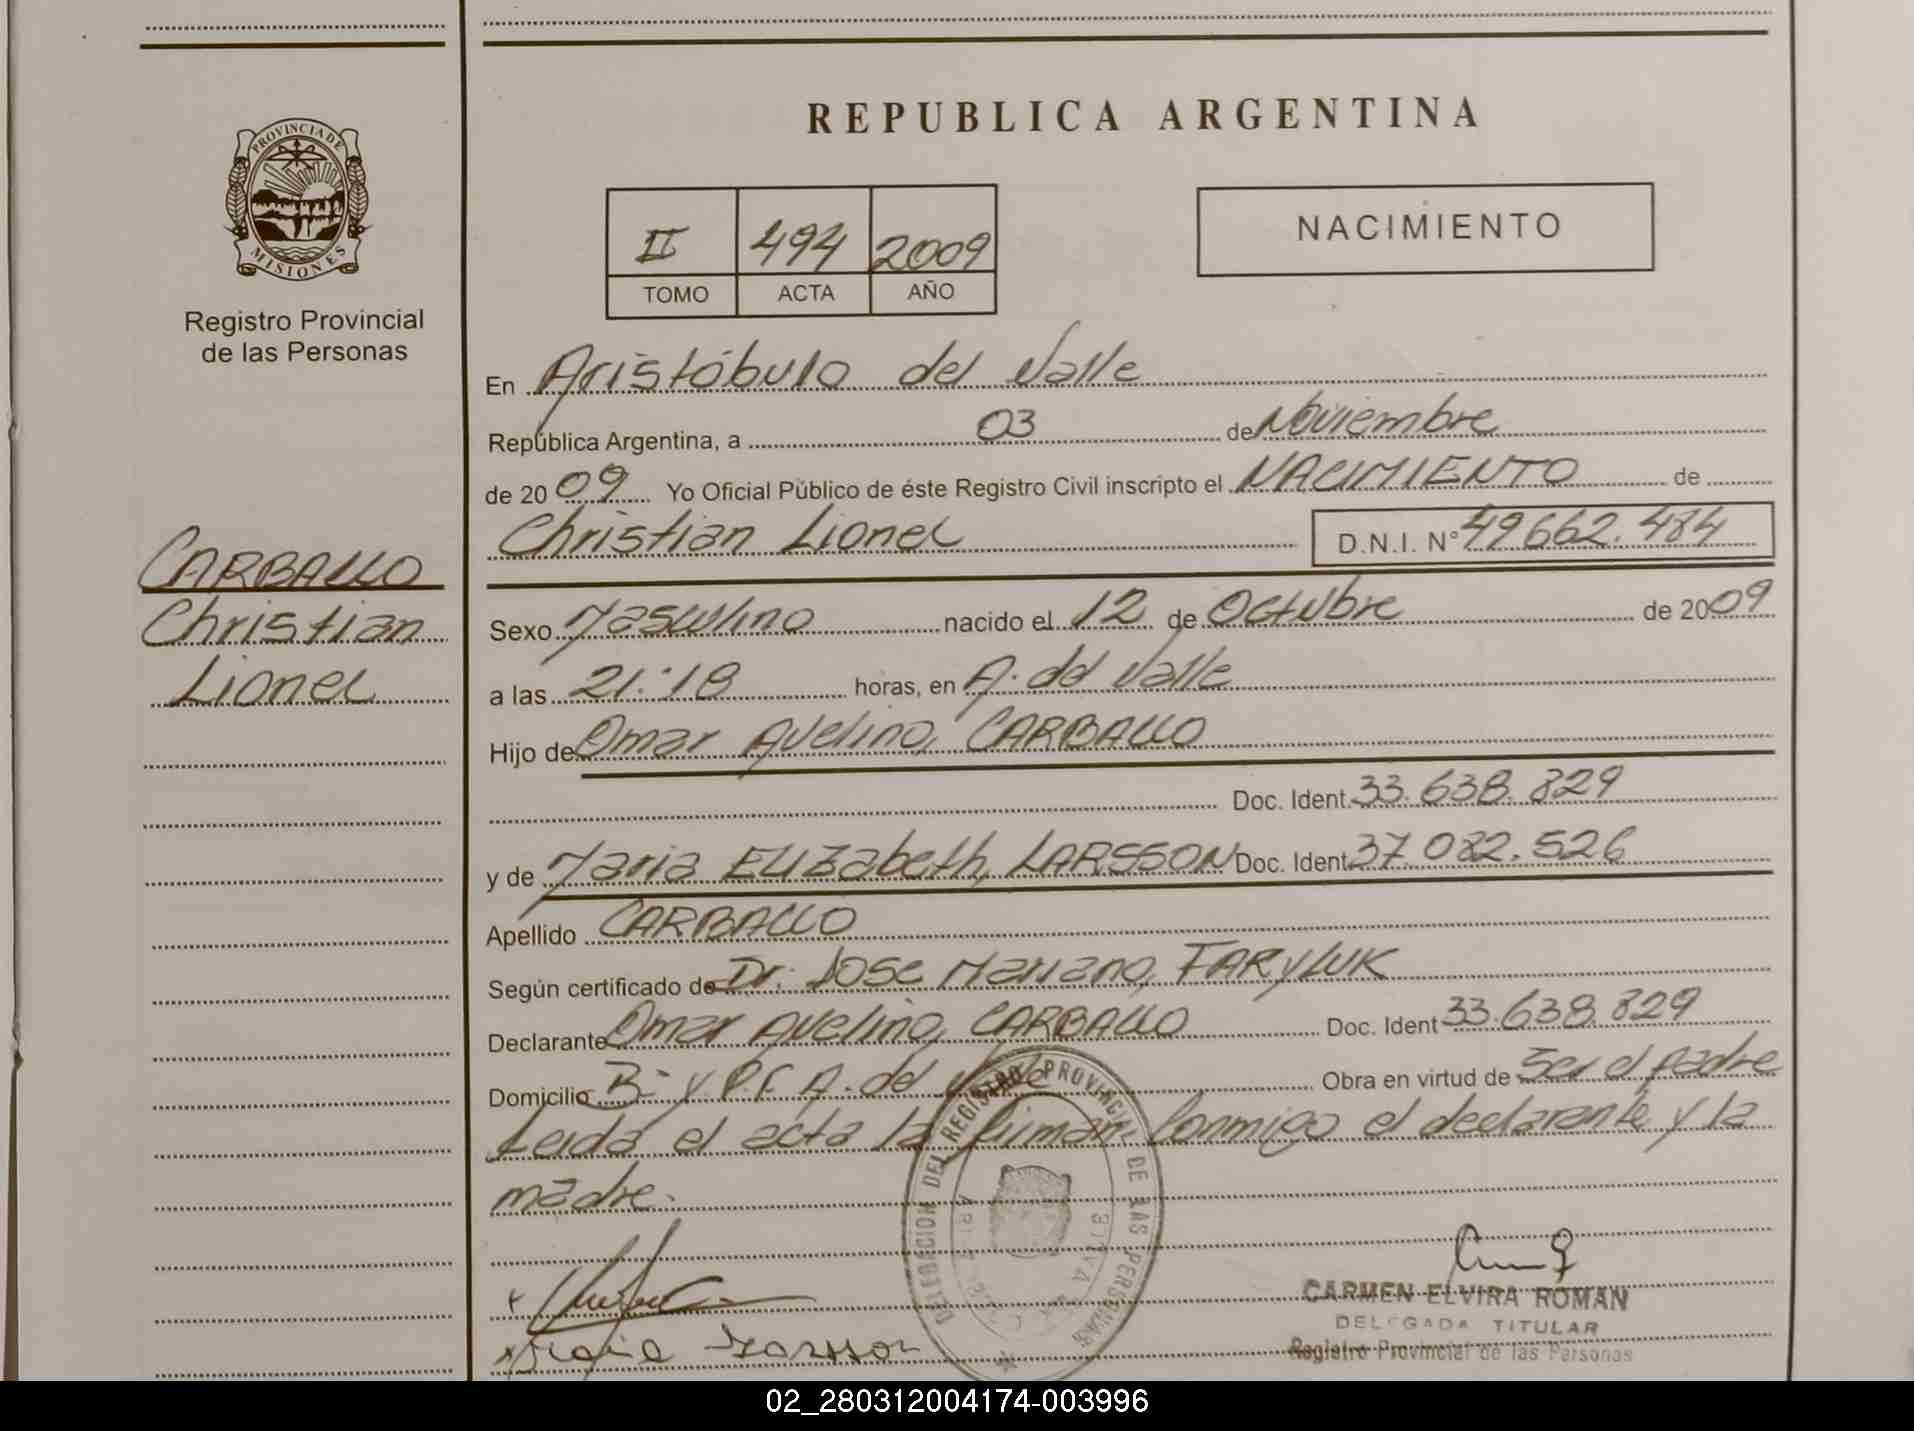 REPUBLICA ARGENTINA
PROVINCIA DE
MISIONES
Registro Provincial
de las Personas
II 494 2009
TOMO ACTA AÑO
NACIMIENTO
En Aristóbulo del Valle
República Argentina, a 03 de Noviembre
de 20 09 Yo Oficial Público de éste Registro Civil inscripto el NACIMIENTO de
Christian Lionel D.N.I. N° 49662.484
CARBALLO
Christian
Lionel
Sexo Masculino nacido el 12 de Octubre de 2009
a las 21:18 horas, en A. del Valle
Hijo de Omar Avelino, CARBALLO
Doc. Ident. 33.638.829
y de Maria ELIZabeth, LARSSON Doc. Ident 37.082.526
Apellido CARBALLO
Según certificado de Dr. Jose Mariano, FARYLUK
Declarante Omar Avelino, CARBALLO Doc. Ident 33.638.829
Domicilio B. y P.F. A. del Valle Obra en virtud de Ser el padre
Leida el acta la firman conmigo el declarante y la
madre.
DELEGACION DEL REGISTRO PROVINCIAL DE LAS PERSONAS
CARMEN ELVIRA ROMAN
DELEGADA TITULAR
Registro Provincial de las Personas
Maria Larsson
02_280312004174-003996